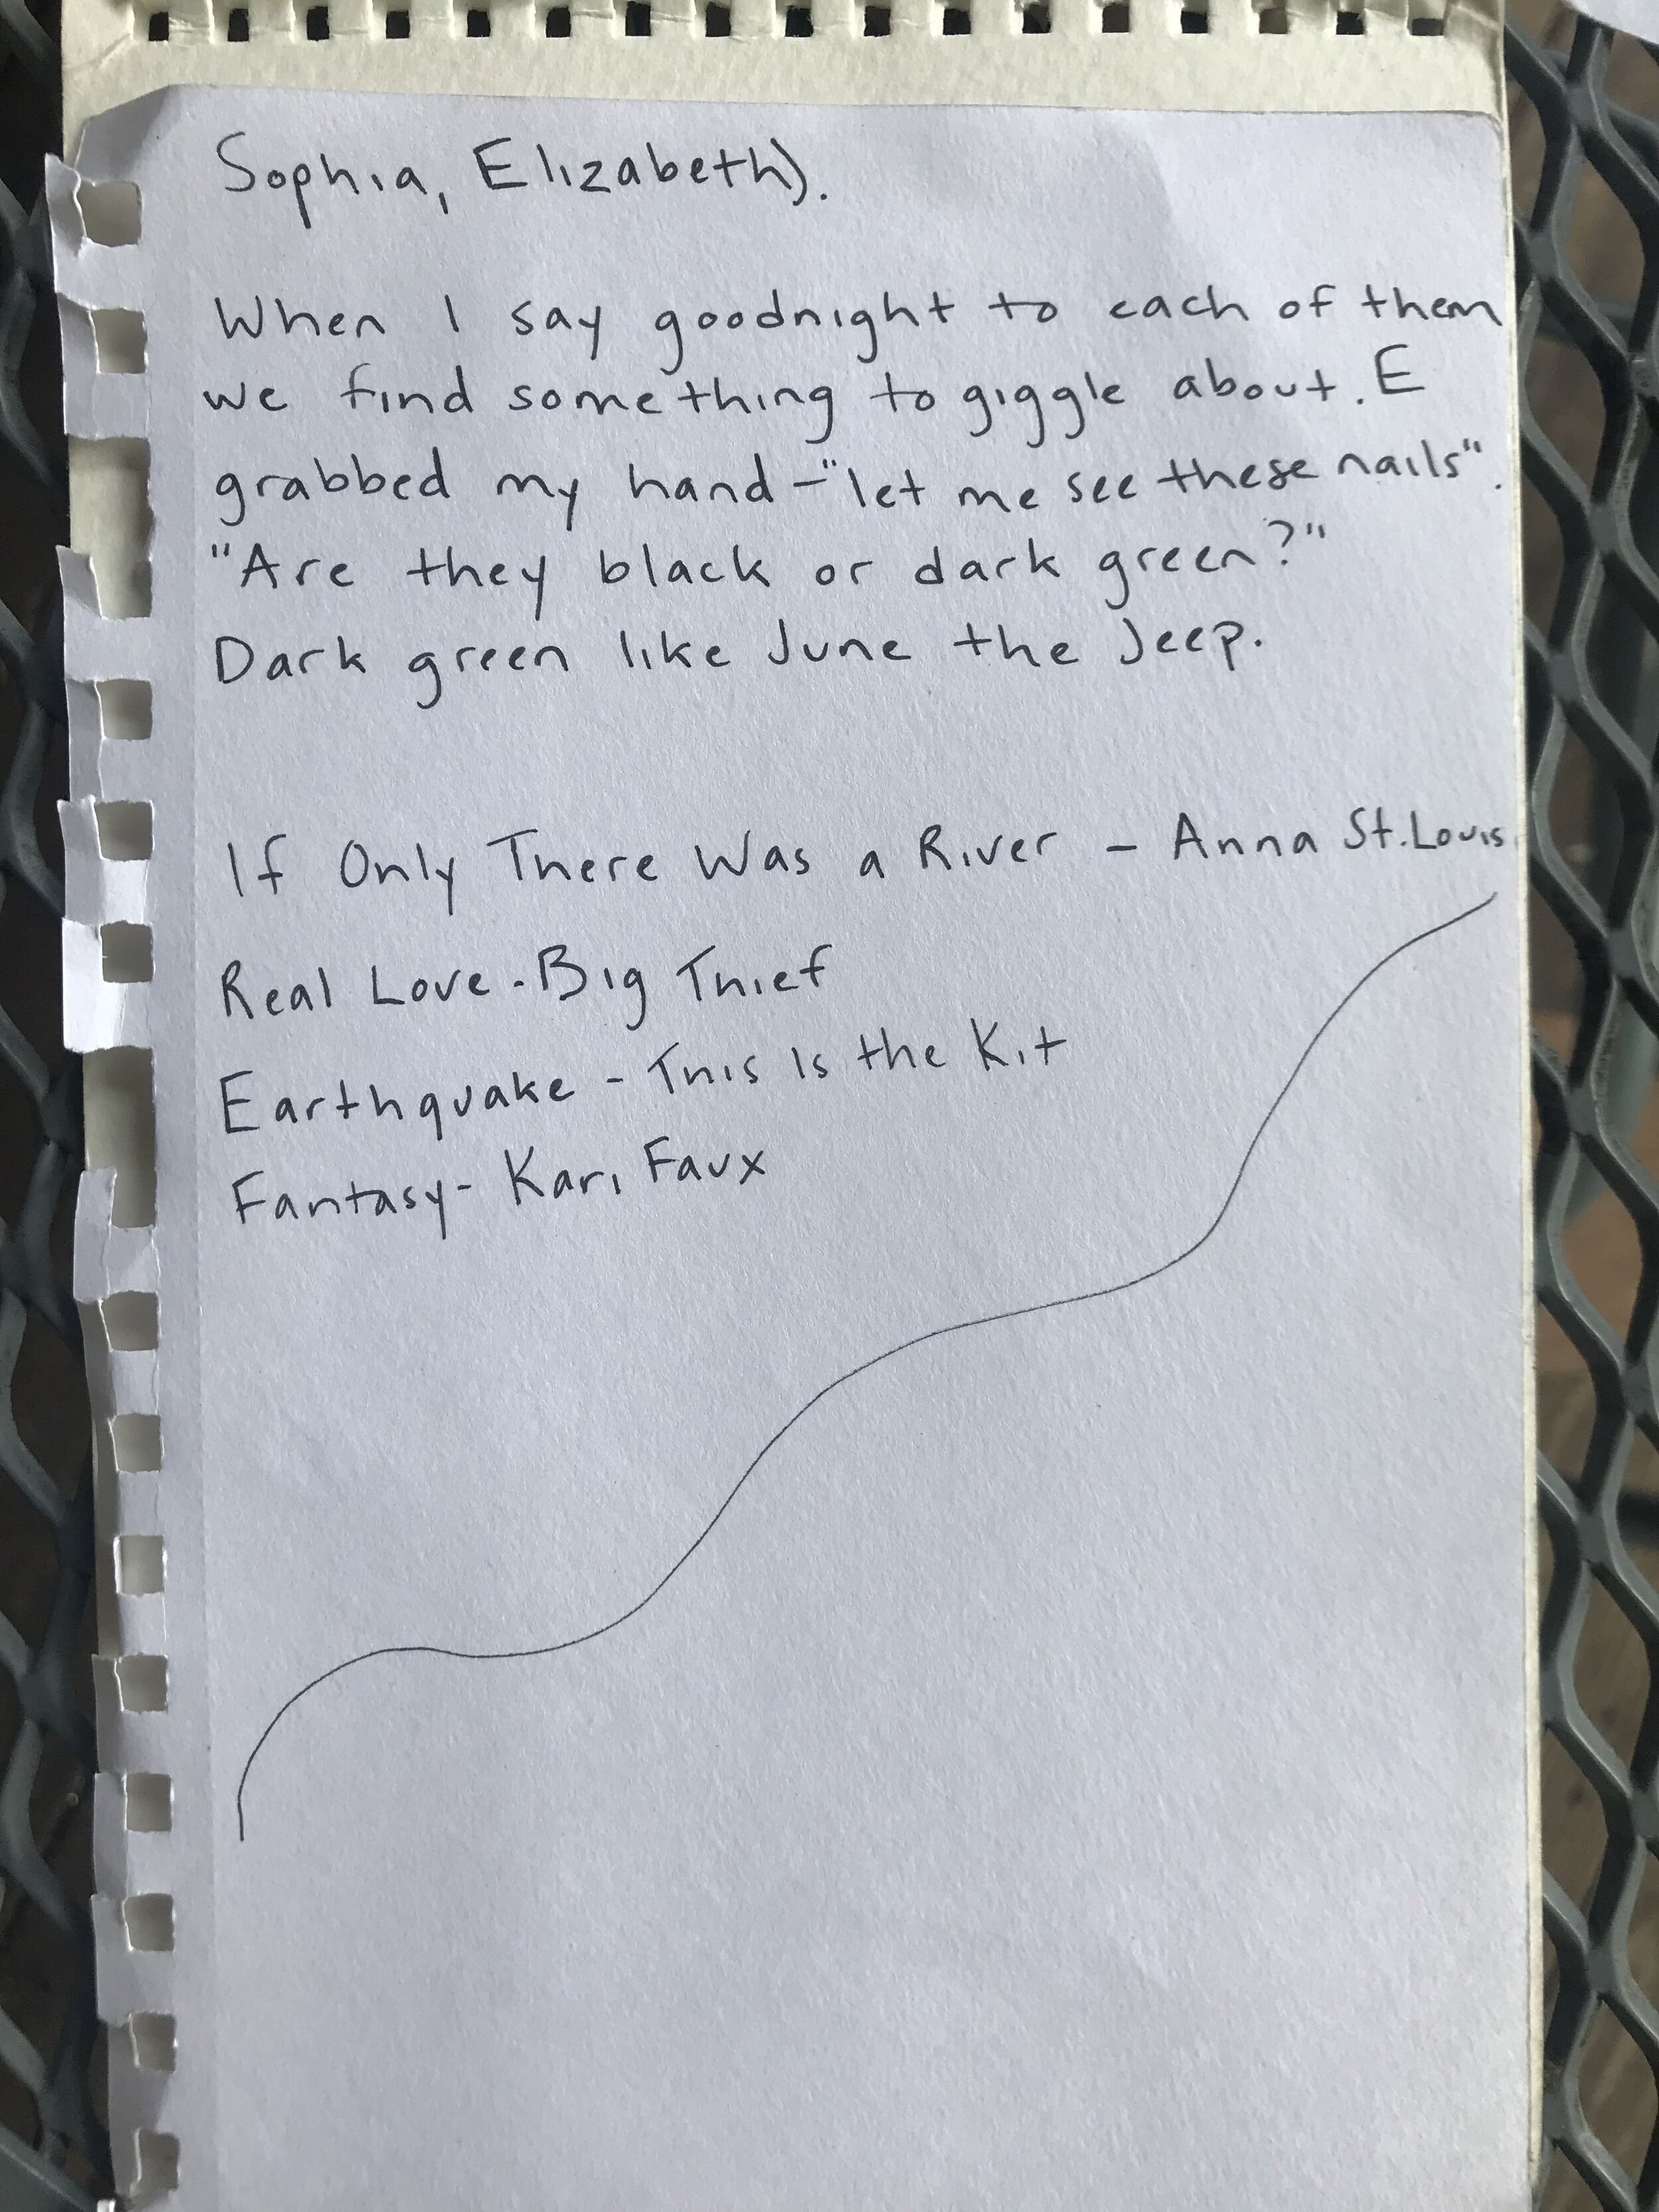 Sophia, Elizabeth).
When I say goodnight to each of them
we find something to giggle about. E
grabbed my hand - "let me see these nails".
"Are they black or dark green?"
Dark green like June the Jeep.
If Only There Was a River - Anna St. Louis
Real Love - Big Thief
Earthquake - This Is the Kit
Fantasy - Kari Faux